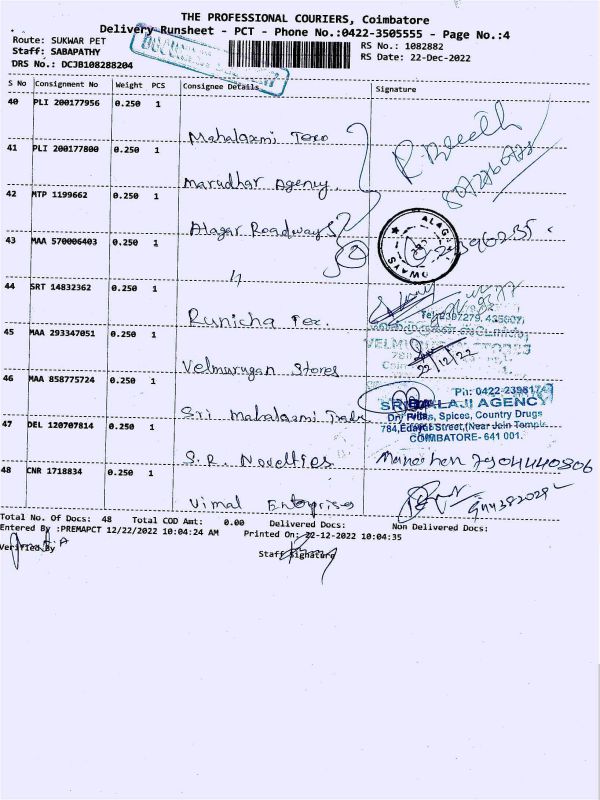 THE PROFESSIONAL COURIERS, Coimbatore
Delivery Runsheet - PCT - Phone No.:0422-3505555 - Page No.:4
Route: SUKWAR PET
RS No.: 1082882
Staff: SABAPATHY
RS Date: 22-Dec-2022
DRS No.: DCJB108288204
S No Consignment No Weight PCS Consignee Details Signature
40 PLI 200177956 0.250 1
Mahalaxmi Texo
41 PLI 200177800 0.250 1
Marudhar Agency.
42 MTP 1199662 0.250 1
Alagar Roadways
43 MAA 570006403 0.250 1
44 SRT 14832362 0.250 1
Runicha Tex.
45 MAA 293347051 0.250 1
Velmurugan Stores
22/12/22
46 MAA 858775724 0.250 1
Sri Mahalaxmi Trade
Ph: 0422-2398174
SRI BALAJI AGENCY
Dry Fruits, Spices, Country Drugs
784, Edayar Street, (Near Jain Temple
COIMBATORE- 641 001.
47 DEL 120707814 0.250 1
S.R. Novelties
48 CNR 1718834 0.250 1
Vimal Enterprises
Total No. Of Docs: 48 Total COD Amt: 0.00 Delivered Docs: Non Delivered Docs:
Entered By :PREMAPCT 12/22/2022 10:04:24 AM Printed On: 22-12-2022 10:04:35
Verified By
Staff Signature